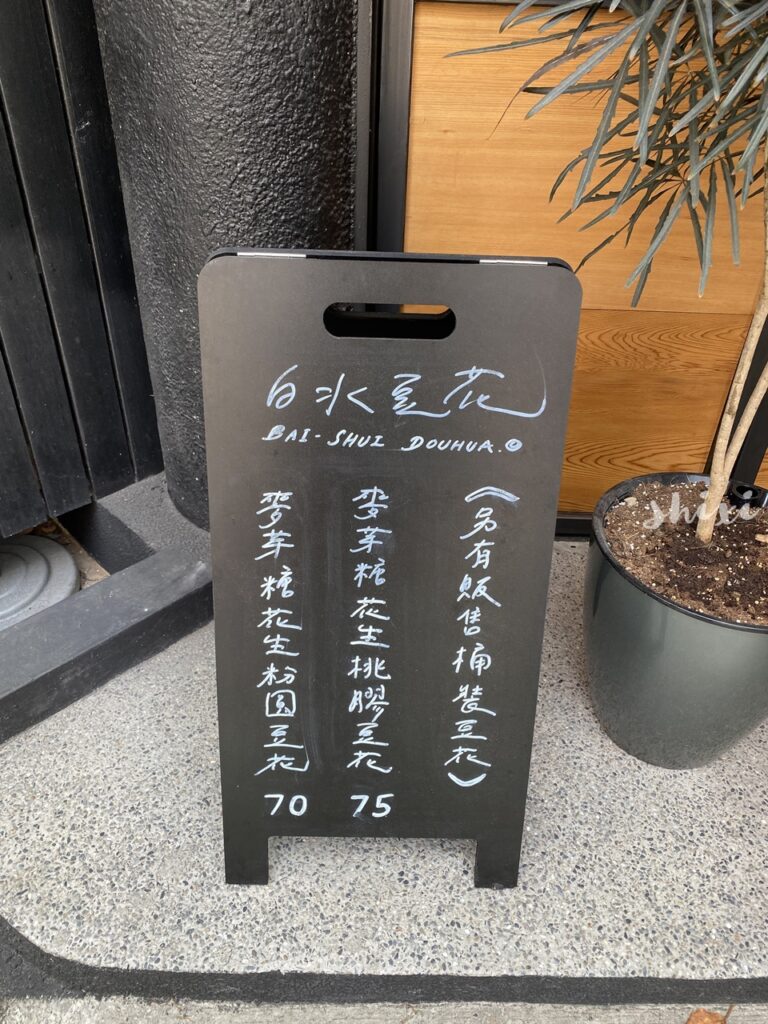 白水豆花
BAI-SHUI DOUHUA.©
(另有販售桶裝豆花)
麥芽糖花生桃膠豆花 75
麥芽糖花生粉圓豆花 70
shixi